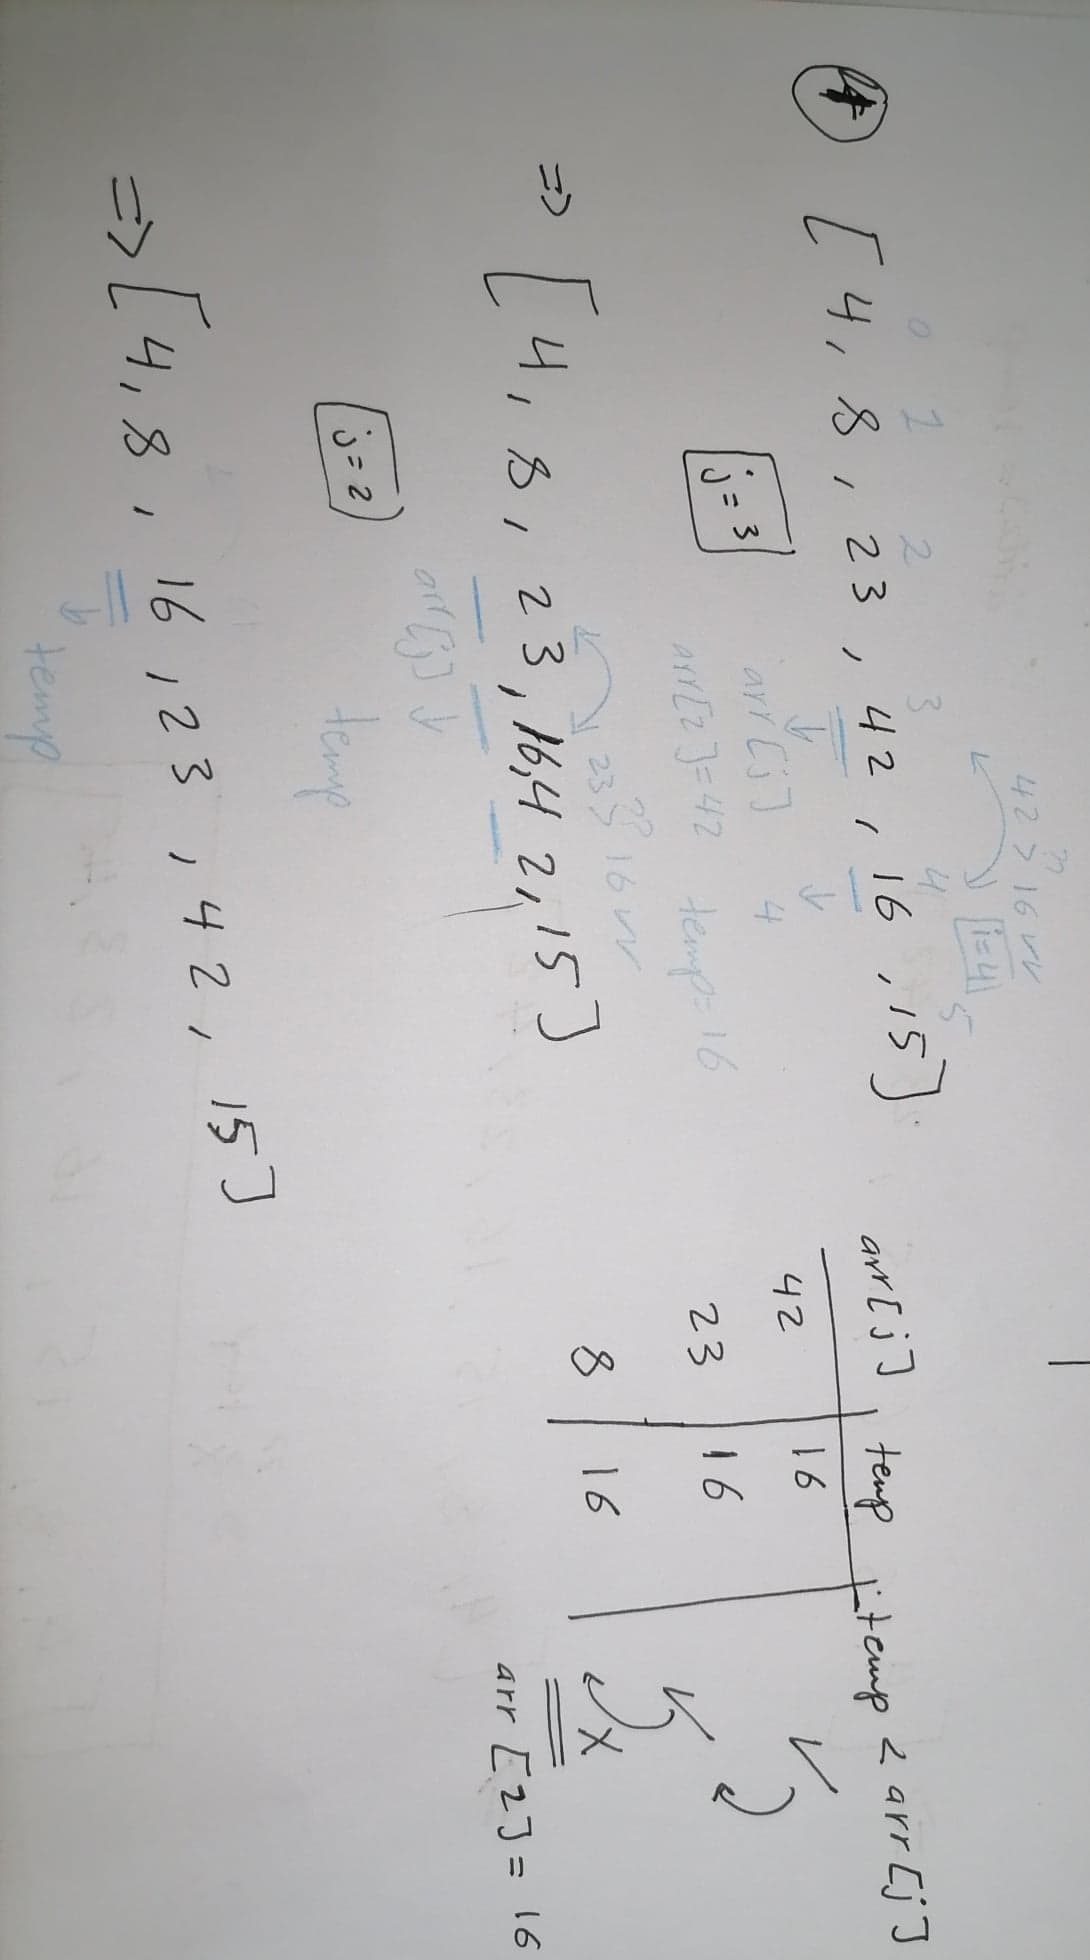 42 > 16
i=4
0 1 2 3 4 5
④ [ 4, 8, 23, 42, 16, 15]
arr[j] 4
j=3
arr[2]=42 temp=16
23 > 16
=> [ 4, 8, 23, 16, 42, 15]
arr[j]
j=2
temp
=> [ 4, 8, 16, 23, 42, 15]
temp
arr[j] temp temp < arr[j]
42 16 ✓
23 16 ✓
8 16 x
arr[2] = 16